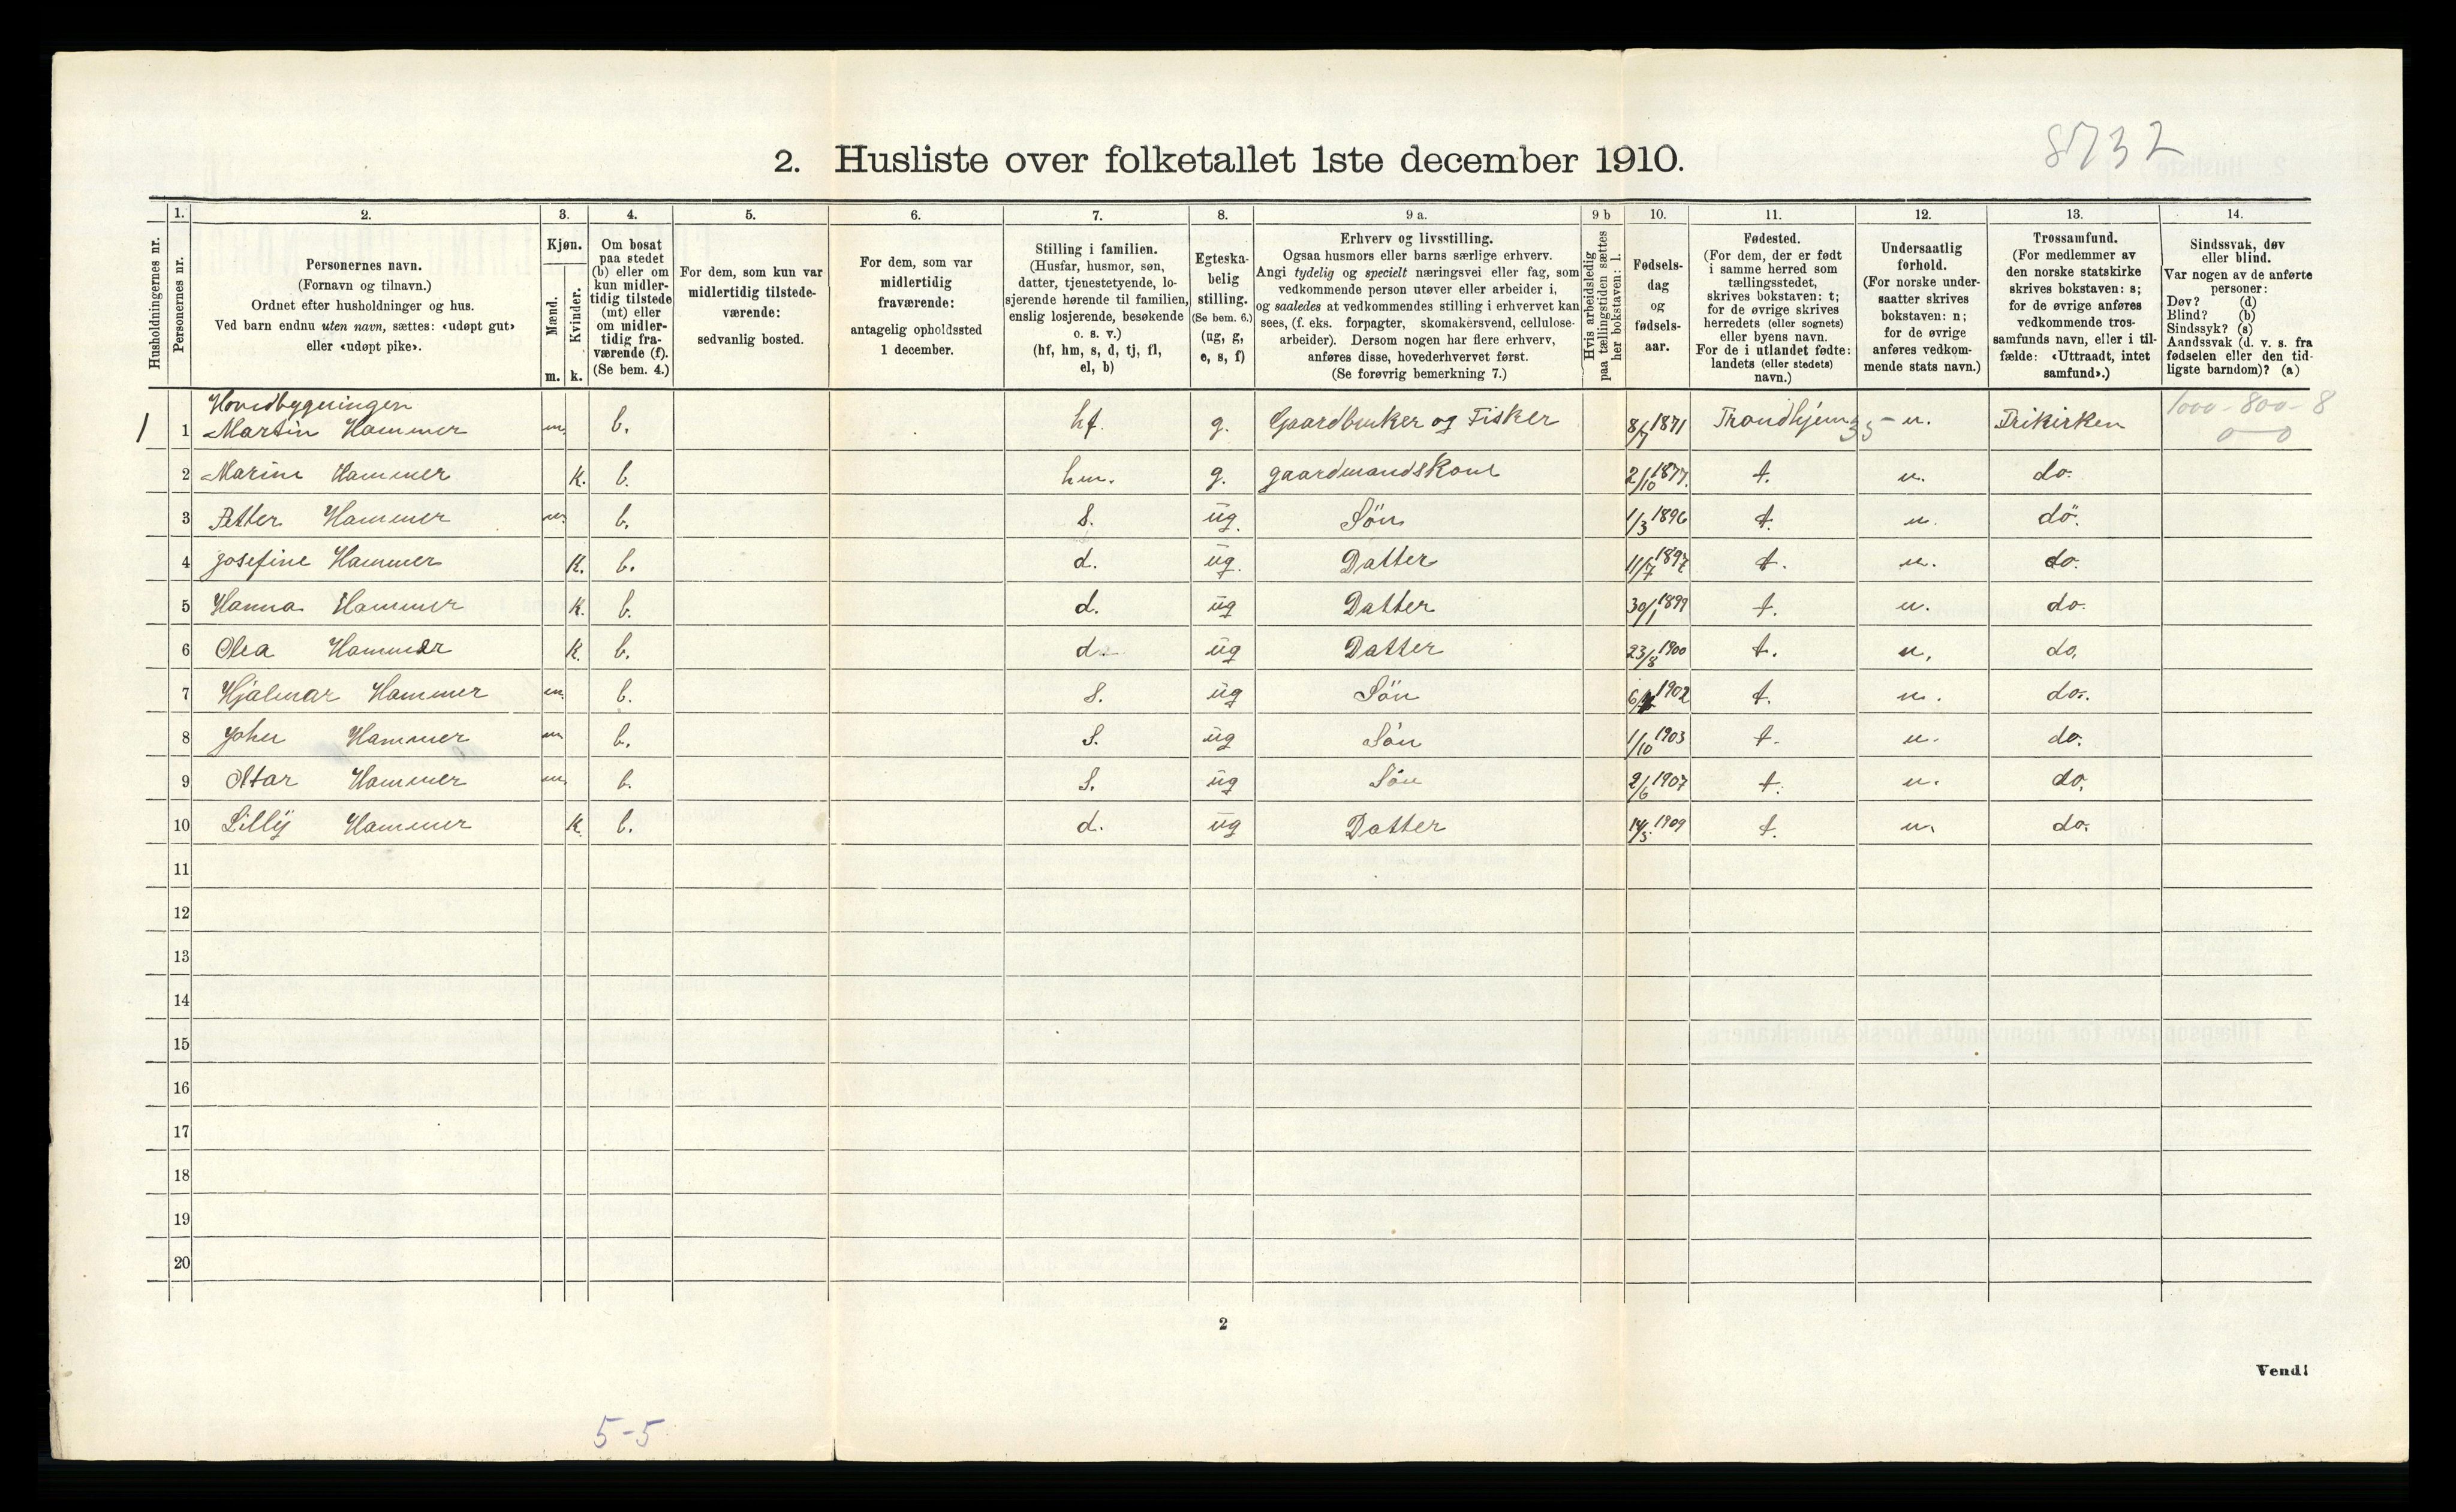 8732
2. Husliste over folketallet 1ste december 1910.
Husholdningernes nr.
1. Personernes nr.
2. Personernes navn.
(Fornavn og tilnavn.)
Ordnet efter husholdninger og hus.
Ved barn endnu uten navn, sættes: «udøpt gut»
eller «udøpt pike».
3. Kjøn.
Mænd. m.
Kvinder. k.
4. Om bosat
paa stedet
(b) eller om
kun midler-
tidig tilstede
(mt) eller
om midler-
tidig fra-
værende (f).
(Se bem. 4.)
5. For dem, som kun var
midlertidig tilstede-
værende:
sedvanlig bosted.
6. For dem, som var
midlertidig
fraværende:
antagelig opholdssted
1 december.
7. Stilling i familien.
(Husfar, husmor, søn,
datter, tjenestetyende, lo-
sjerende hørende til familien,
enslig losjerende, besøkende
o. s. v.)
(hf, hm, s, d, tj, fl,
el, b)
8. Egteska-
belig
stilling.
(Se bem. 6.)
(ug, g,
e, s, f)
9 a. Erhverv og livsstilling.
Ogsaa husmors eller barns særlige erhverv.
Angi tydelig og specielt næringsvei eller fag, som
vedkommende person utøver eller arbeider i,
og saaledes at vedkommendes stilling i erhvervet kan
sees, (f. eks. forpagter, skomakersvend, cellulose-
arbeider). Dersom nogen har flere erhverv,
anføres disse, hovederhvervet først.
(Se forøvrig bemerkning 7.)
9 b Hvis arbeidsledig
paa tællingstiden sættes
her bokstaven: l.
10. Fødsels-
dag
og
fødsels-
aar.
11. Fødested.
(For dem, der er født
i samme herred som
tællingsstedet,
skrives bokstaven: t;
for de øvrige skrives
herredets (eller sognets)
eller byens navn.
For de i utlandet fødte:
landets (eller stedets)
navn.)
12. Undersaatlig
forhold.
(For norske under-
saatter skrives
bokstaven: n;
for de øvrige
anføres vedkom-
mende stats navn.)
13. Trossamfund.
(For medlemmer av
den norske statskirke
skrives bokstaven: s;
for de øvrige anføres
vedkommende tros-
samfunds navn, eller i til-
fælde: «Uttraadt, intet
samfund».)
14. Sindssvak, døv
eller blind.
Var nogen av de anførte
personer:
Døv? (d)
Blind? (b)
Sindssyk? (s)
Aandssvak (d. v. s. fra
fødselen eller den tid-
ligste barndom)? (a)
Hovedbygningen
1 1 Martin Hammer m. b. hf. g. Gaardbruker og Fisker 8/7 1871 Trondhjem 35 - n. Frikirken 1000-800-8
0—0
2 Marine Hammer k. b. hm. g. gaardmandskone 2/10 1877. t. n. do.
3 Petter Hammer m. b. s. ug. Søn 1/3 1896 t. n. do.
4 Josefine Hammer k. b. d. ug. Datter 11/7 1897 t. n. do.
5 Hanna Hammer k. b. d. ug Datter 30/1 1899 t. n. do.
6 Olea Hammer k. b. d. ug Datter 23/8 1900 t. n. do.
7 Hjalmar Hammer m. b. s. ug Søn 1902 t. n. do.
8 Johan Hammer m b. s. ug Søn 1/10 1903 t. n. do.
9 Otar Hammer m. b. s. ug Søn 2/6 1907 t. n. do.
10 Lilly Hammer k. b. d. ug Datter 14/5 1909 t. n. do.
11
12
13
14
15
16
17
18
19
20
2
Vend!
5-5